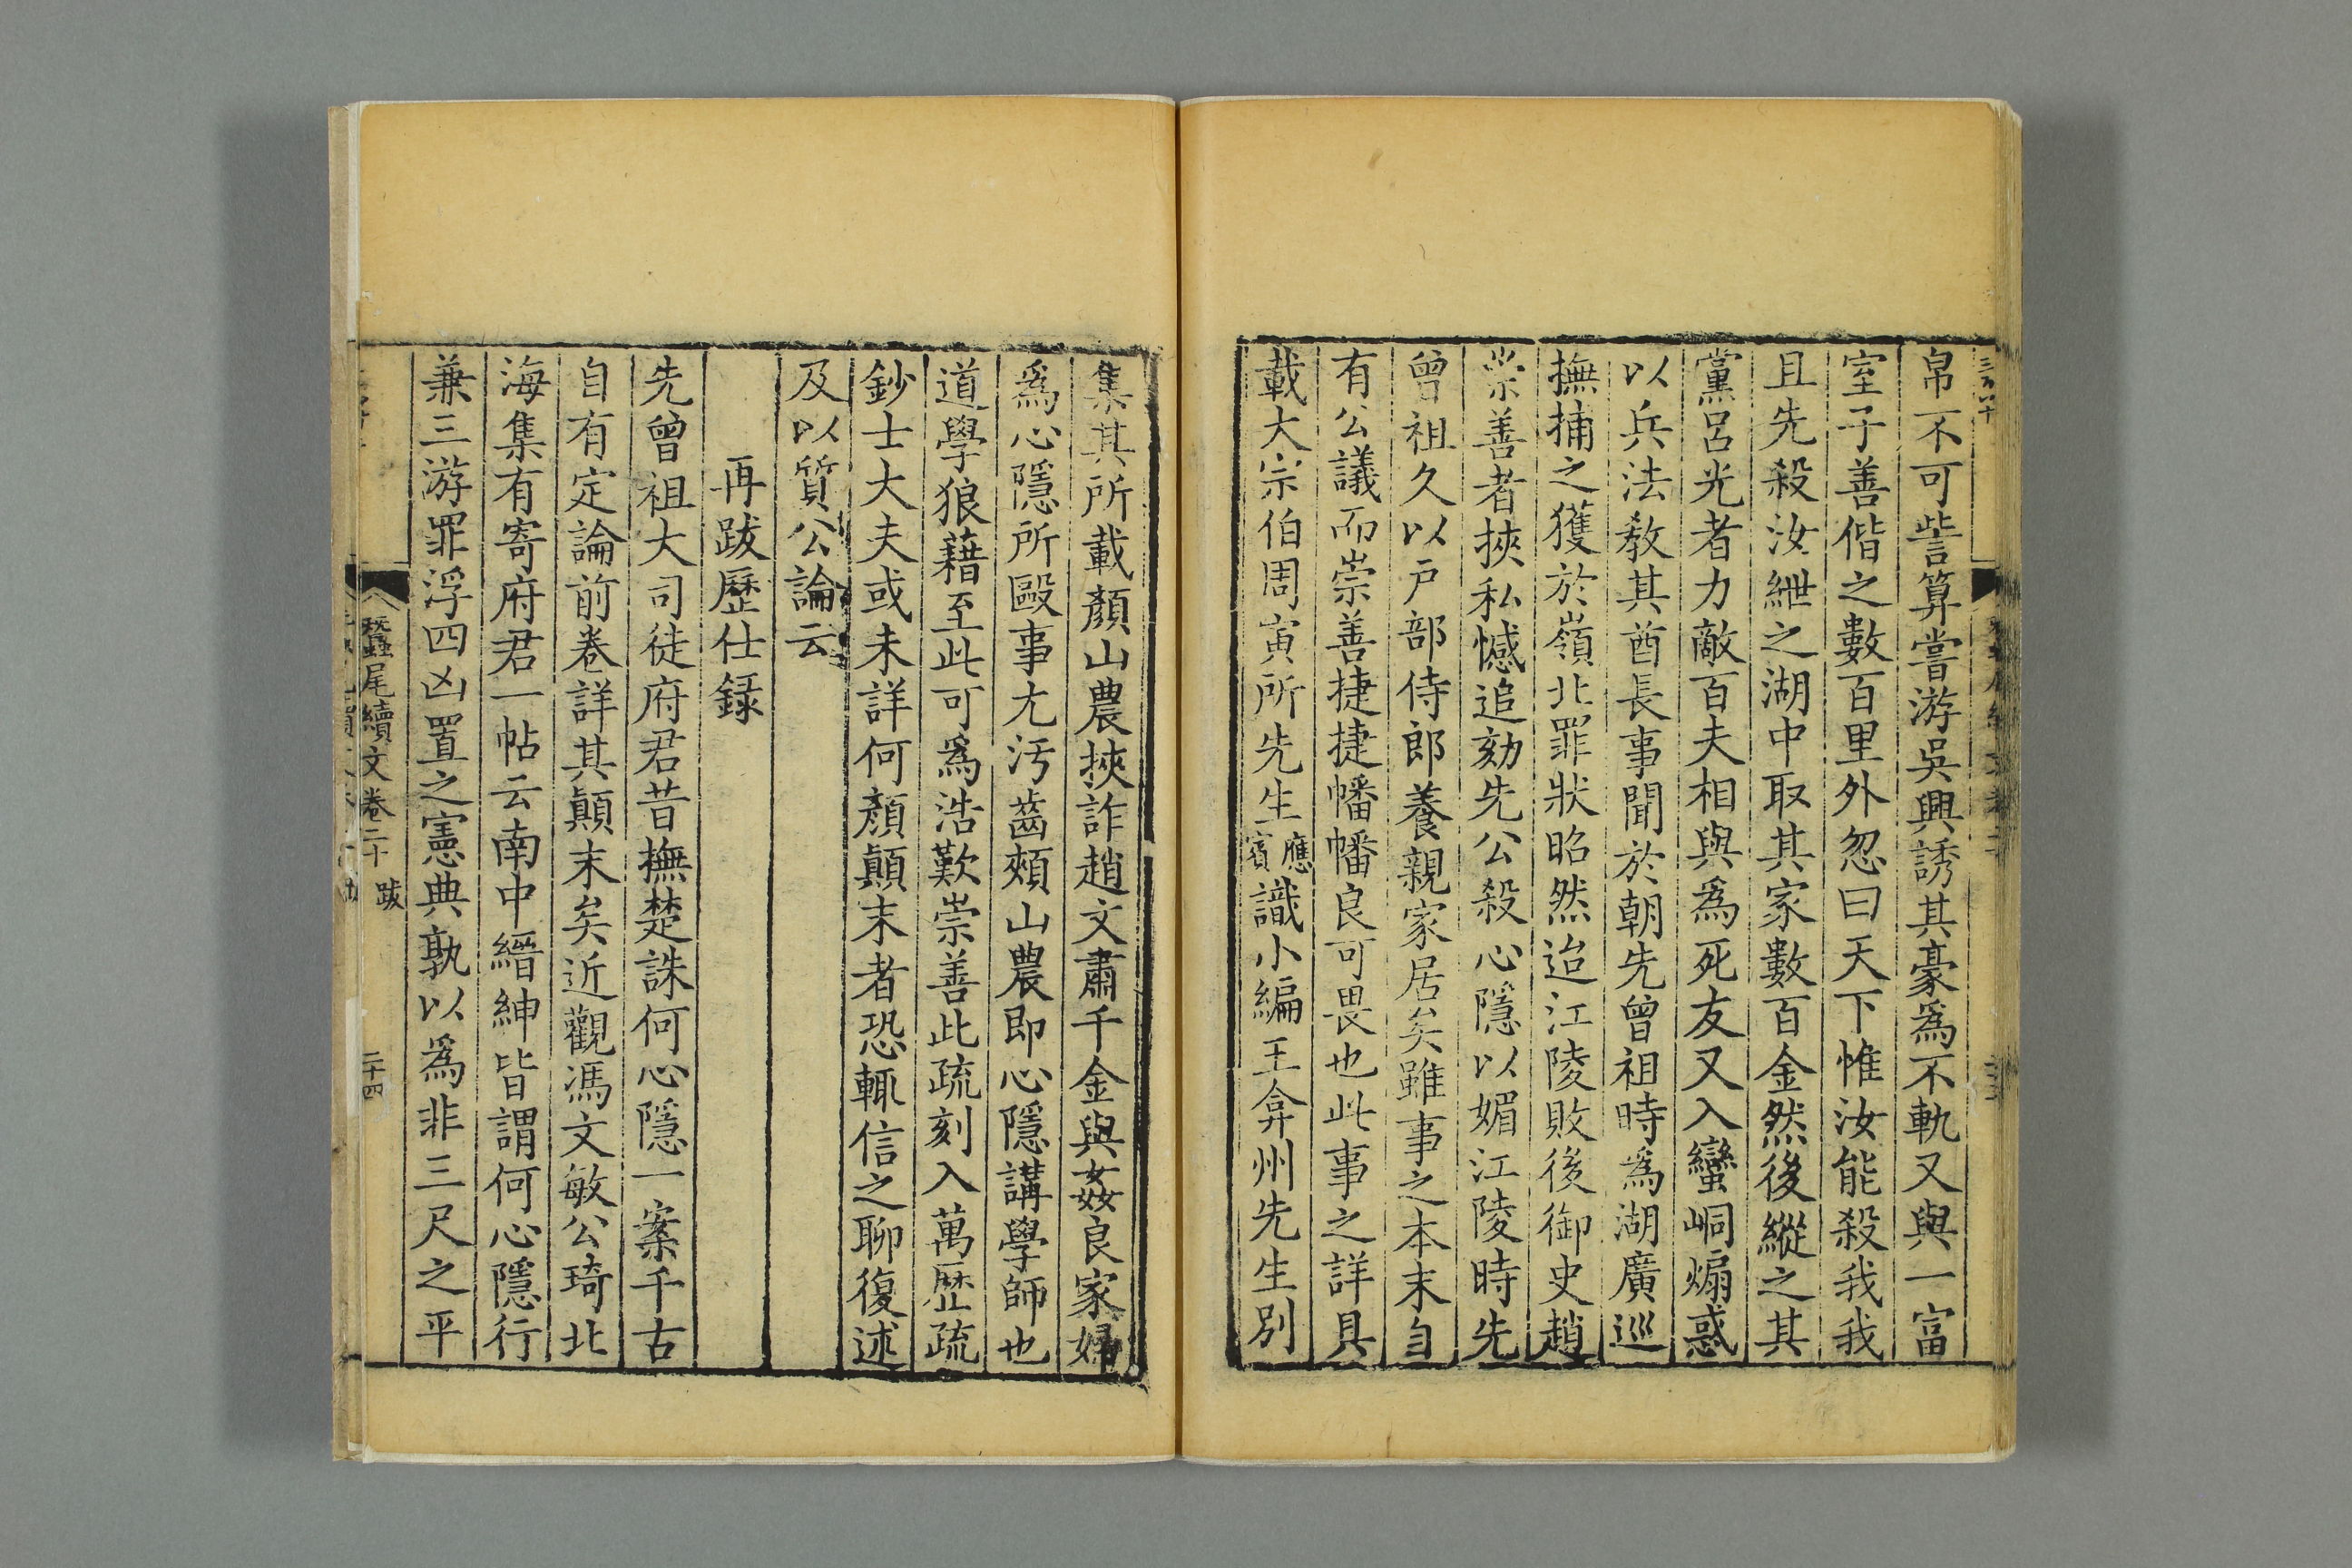 帛不可訾算嘗游吳興誘其豪爲不軌又與一富
室子善偕之數百里外忽曰天下惟汝能殺我我
且先殺汝紲之湖中取其家數百金然後縱之其
黨呂光者力敵百夫相與爲死友又入蠻峒煽惑
以兵法教其酋長事聞於朝先曾祖時爲湖廣巡
撫捕之獲於嶺北罪狀昭然迨江陵敗後御史趙
崇善者挾私憾追劾先公殺心隱以媚江陵時先
曾祖久以戸部侍郎養親家居矣雖事之本末自
有公議而崇善捷捷幡幡良可畏也此事之詳具
載大宗伯周寅所先生應賓識小編王弇州先生別
集其所載顏山農挾詐趙文肅千金與姦良家婦
爲心隱所毆事尤汚齒頰山農即心隱講學師也
道學狼藉至此可爲浩歎崇善此疏刻入萬歷疏
鈔士大夫或未詳何顏顛末者恐輒信之聊復述
及以質公論云
再跋歷仕録
先曾祖大司徒府君昔撫楚誅何心隱一案千古
自有定論前卷詳其顛末矣近觀馮文敏公琦北
海集有寄府君一帖云南中縉紳皆謂何心隱行
兼三游罪浮四凶置之憲典孰以爲非三尺之平
蠶尾續文卷二十 跋 二十四